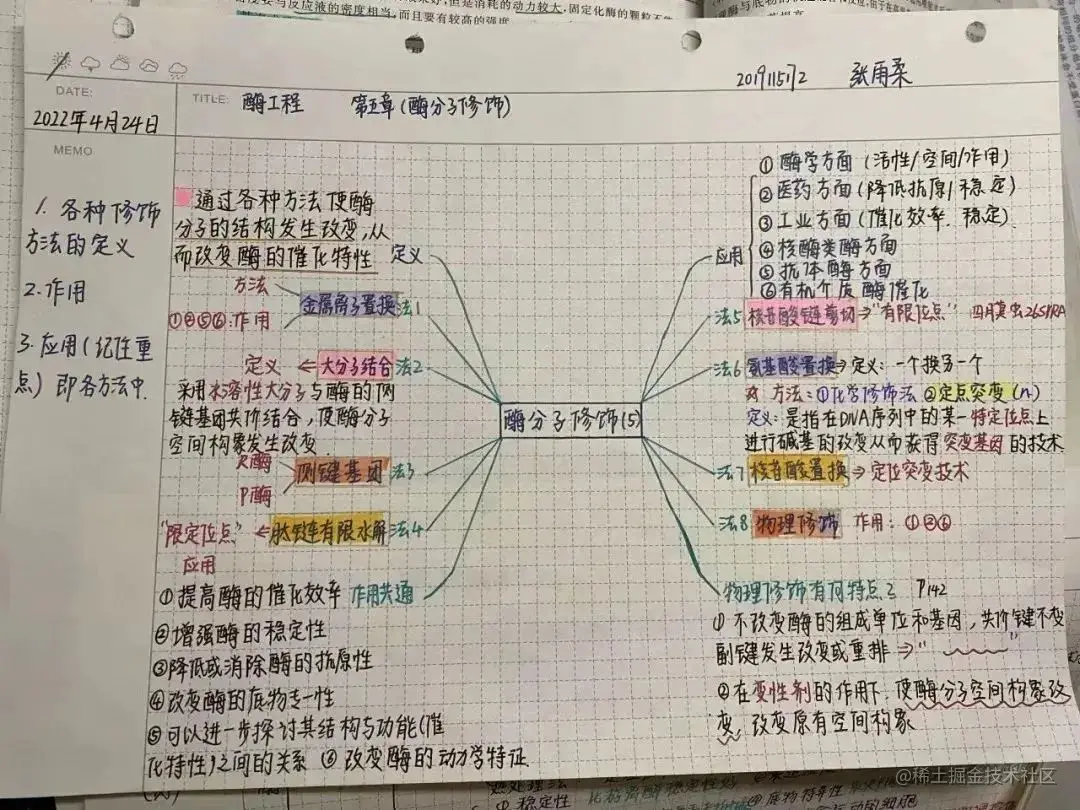 要与反应液的密度相当,而且要有较高的强度
20191151172 张雨柔
DATE:
TITLE: 酶工程 第五章(酶分子修饰)
2022年4月24日
MEMO
1. 各种修饰
方法的定义
2. 作用
3. 应用(记住重
点) 即各方法中.
通过各种方法使酶
分子的结构发生改变,从
而改变酶的催化特性 定义
方法
金属离子置换 法1
①②⑤⑥:作用
定义 ⇐ 大分子结合 法2
采用水溶性大分子与酶的侧
键基团共价结合,使酶分子
空间构象发生改变.
P酶
侧键基团 法3
"限定位点" ⇐ 肽链有限水解 法4
应用
①提高酶的催化效率 作用共通
②增强酶的稳定性
③降低或消除酶的抗原性
④改变酶的底物专一性
⑤可以进一步探讨其结构与功能(催
化特性)之间的关系 ⑥改变酶的动力学特征
酶分子修饰(5)
应用
① 酶学方面 (活性/空间/作用)
② 医药方面(降低抗原/稳定)
③ 工业方面(催化效率. 稳定)
④ 核酶类酶方面
⑤ 抗体酶方面
⑥ 有机介质酶催化
法5 核苷酸链剪切 ⇒ "有限位点" 四月莫虫26SrRNA
法6 氨基酸置换 ⇒ 定义: 一个换另一个
方法: ①化学修饰法 ②定点突变(n)
定义: 是指在DNA序列中的某一特定位点上
进行碱基的改变从而获得突变基因的技术
法7 核苷酸置换 ⇒ 定位突变技术
法8 物理修饰 作用: ①②⑥
物理修饰有何特点? P142
① 不改变酶的组成单位和基团,共价键不变
副键发生改变或重排 ⇒ " "
② 在变性剂的作用下, 使酶分子空间构象改
变, 改变原有空间构象
@稀土掘金技术社区